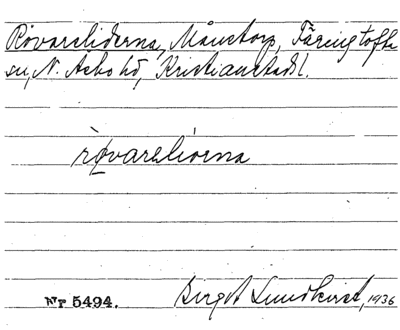 Rövareliderna, Månstorp, Färingtofta
sn, N. Åsbo hd, Kristianstads l.
rövareliderna
Nr 5494.
Birgit Lundkvist, 1936